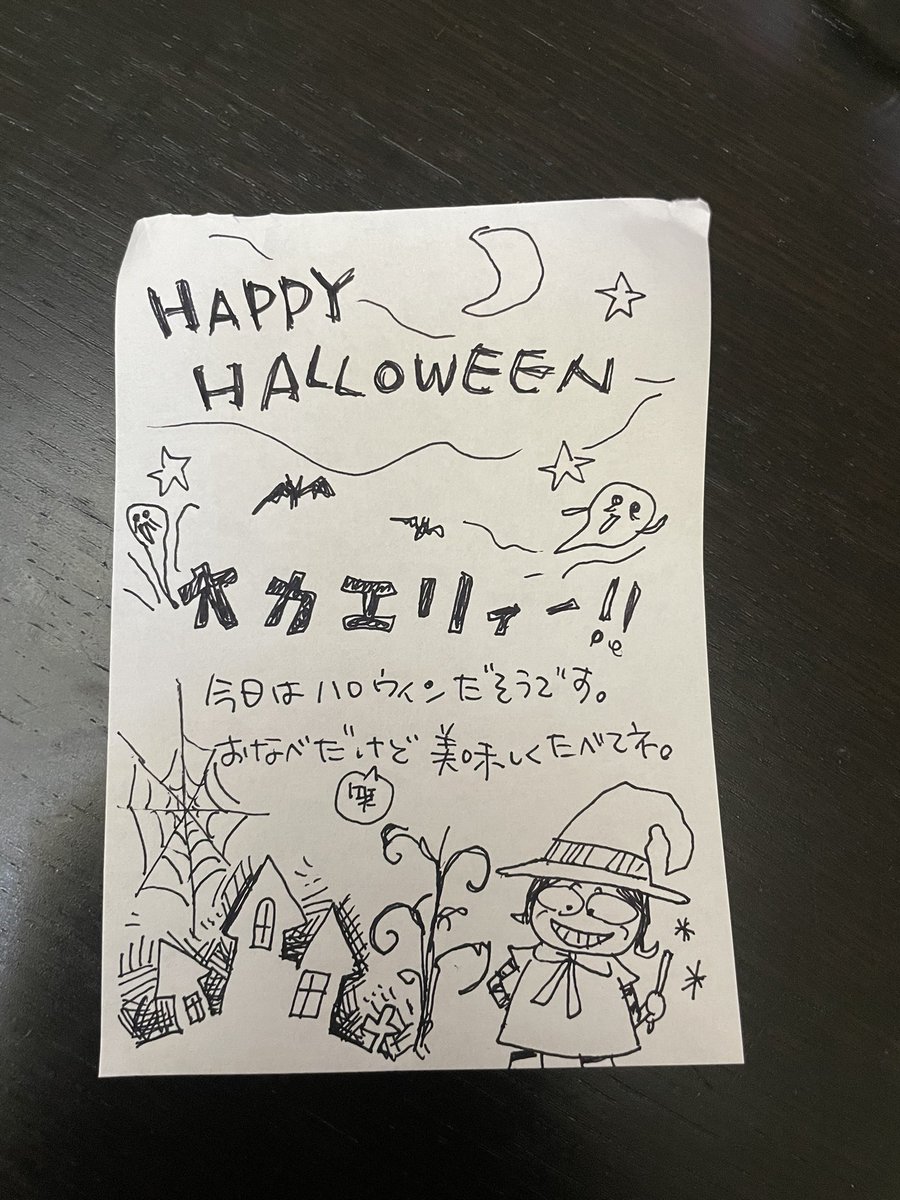 HAPPY
HALLOWEEN
オカエリィー!!
今日はハロウィンだそうです。
おなべだけど美味しくたべてネ。